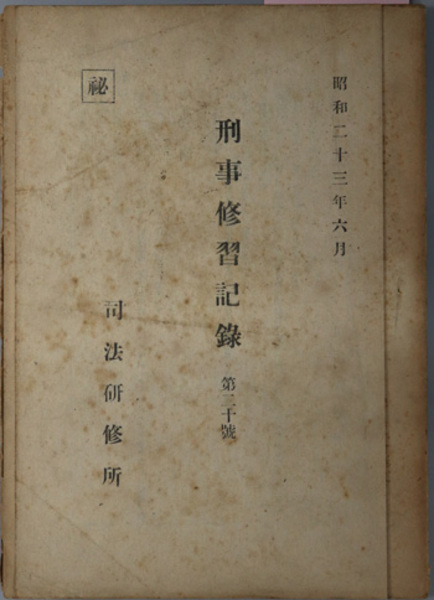 昭和二十三年六月
刑事修習記錄 第二十號
司法研修所
祕